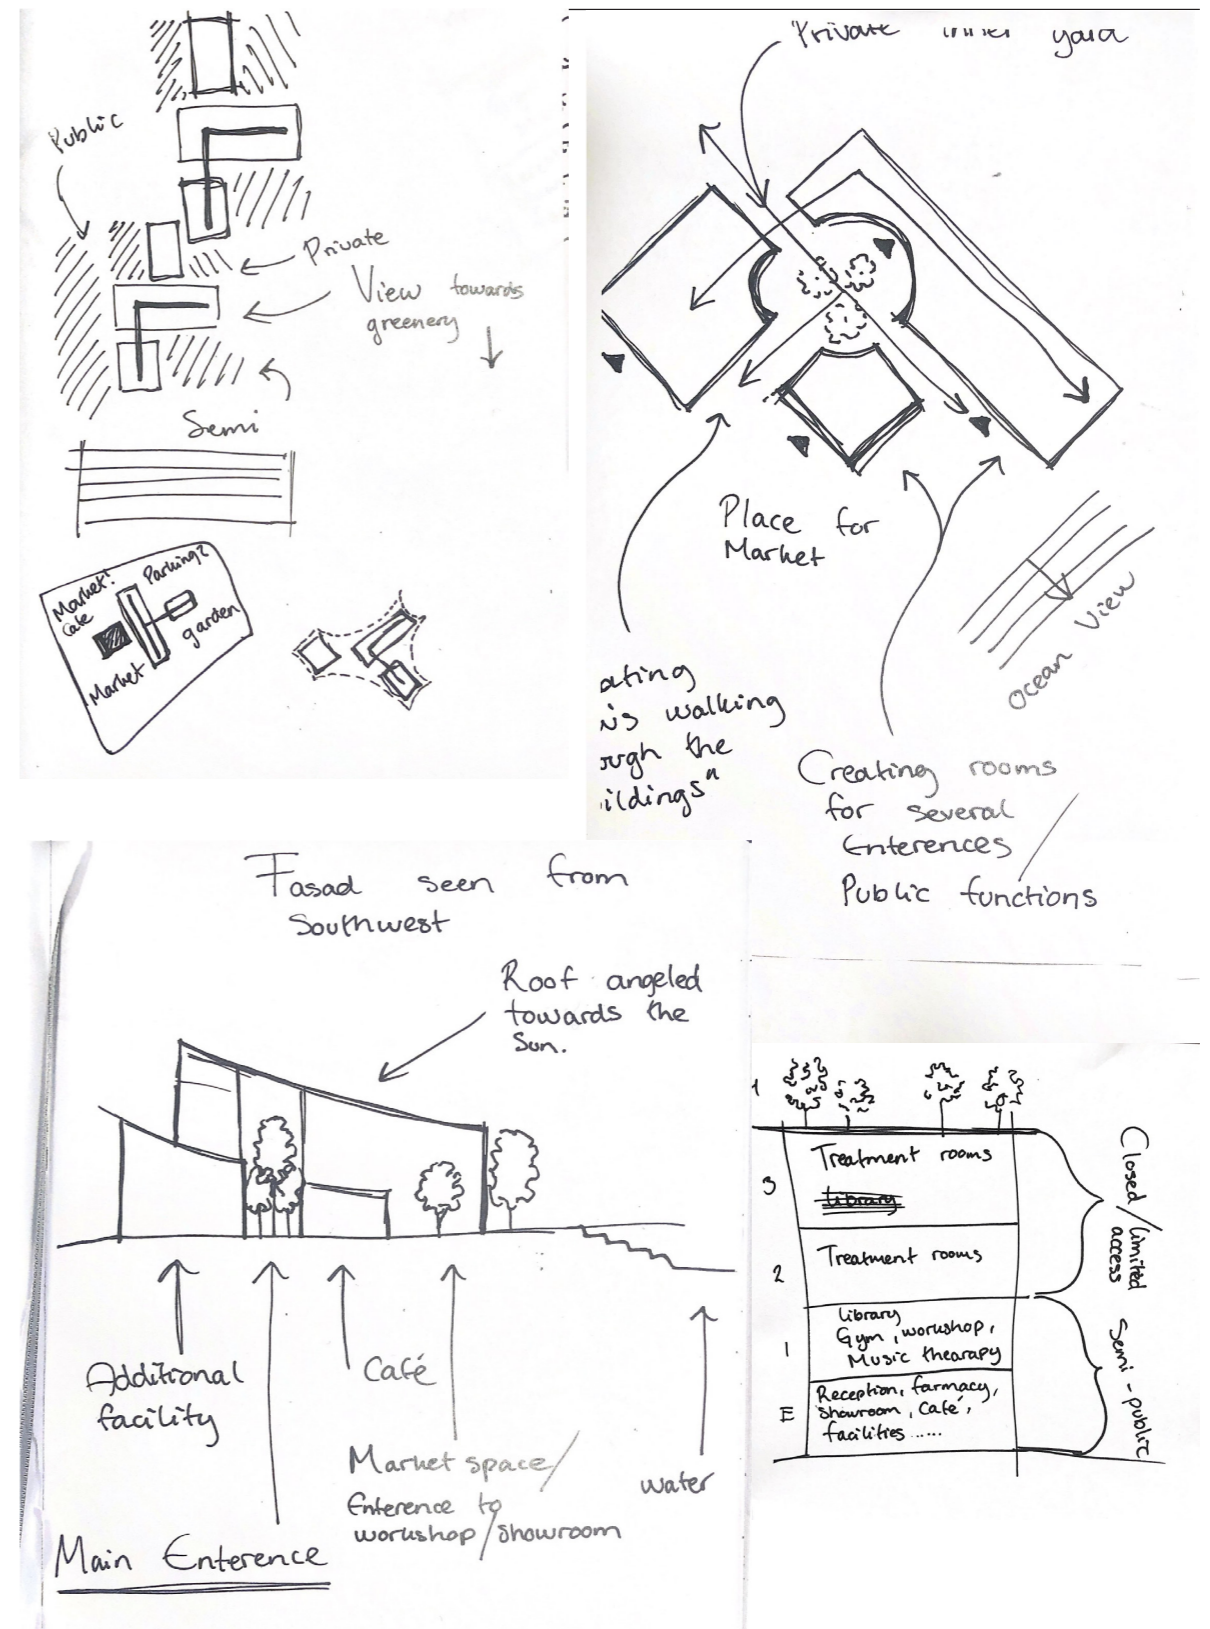 Public
Private
View towards
greenery
Semi
Market!
Cafe
Parking?
garden
Market
Private inner yard
Place for
Market
ocean view
ating
ns walking
ough the
ildings"
Creating rooms
for several
Enterences /
Public functions
Fasad seen from
Southwest
Roof angeled
towards the
Sun.
Additional
facility
Café
Market space/
Enterence to
workshop/showroom
water
Main Enterence
3
Treatment rooms
Library
2
Treatment rooms
Closed/limited
access
1
Library
Gym, workshop,
Music thearapy
E
Reception, farmacy,
showroom, Café,
facilities......
Semi-public